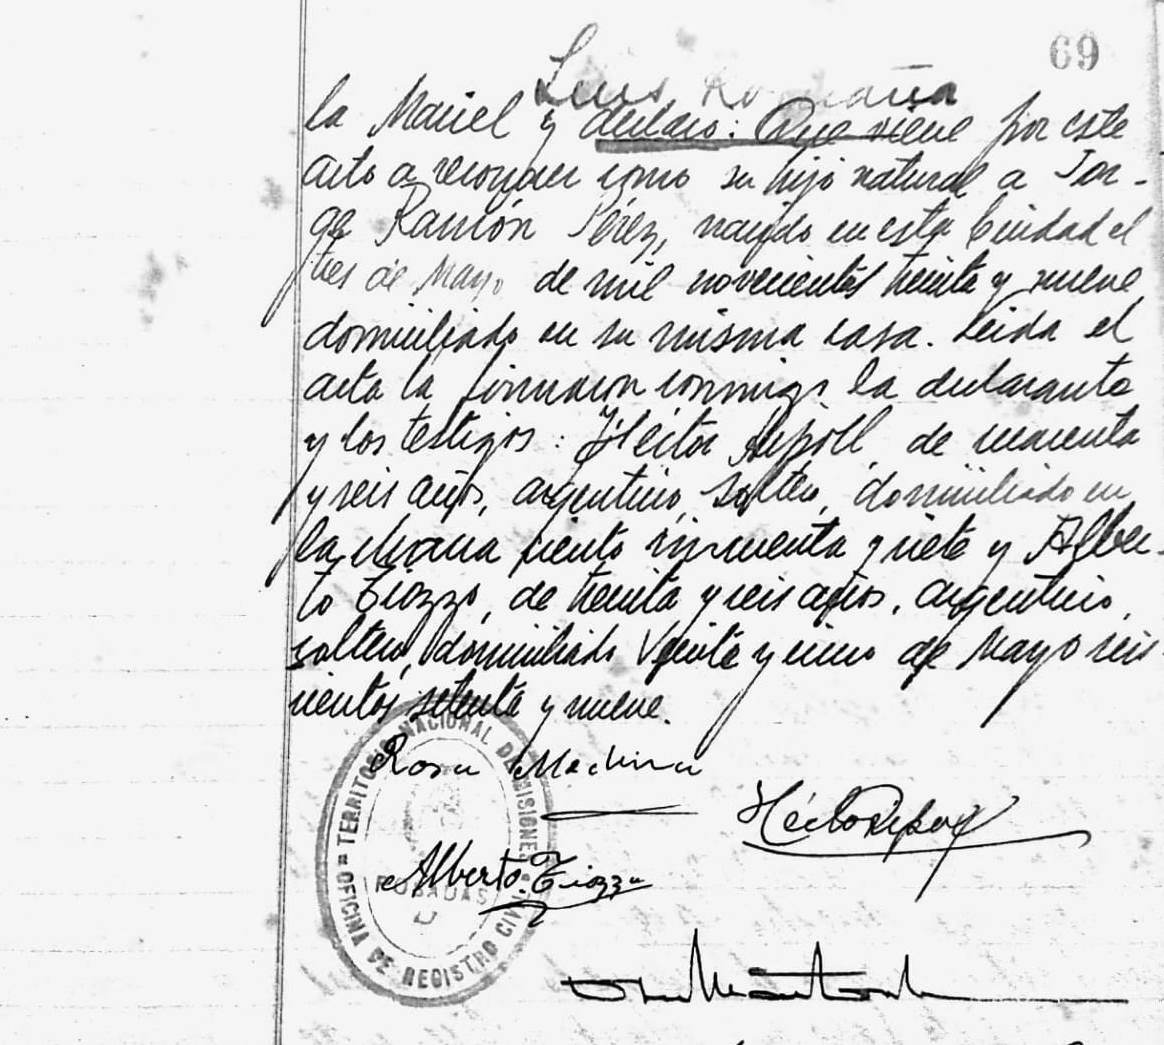 69
Luis
la Mariel y declaro: Que viene por este
acto a reconocer como su hijo natural a Jor-
ge Ramón Pérez, nacido en esta Ciudad el
tres de Mayo de mil novecientos treinta y nueve
domiciliado en su misma casa. Leida el
acta la firmaron conmigo la declarante
y los testigos: Héctor Ripoll, de cuarenta
y seis años, argentino, soltero, domiciliado en
la chacra ciento cincuenta y siete y Alber-
to Tiozzo, de treinta y seis años, argentino,
soltero, domiciliado Veinte y cinco de Mayo seis-
cientos setenta y nueve.
Rosa Medina
Héctor Ripoll
Alberto Tiozzo
TERRITORIO NACIONAL DE MISIONES
POSADAS
OFICINA DE REGISTRO CIVIL